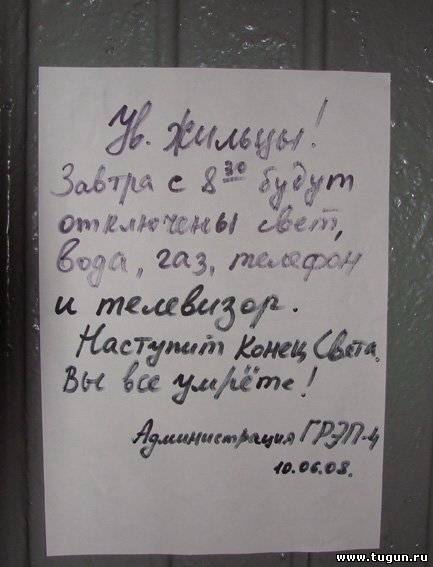 Ув. Жильцы!
Завтра с 8 30 будут
отключены свет,
вода, газ, телефон
и телевизор.
Наступит Конец Света.
Вы все умрёте!
Администрация ГРЭП-4
10.06.08.
www.tugun.ru